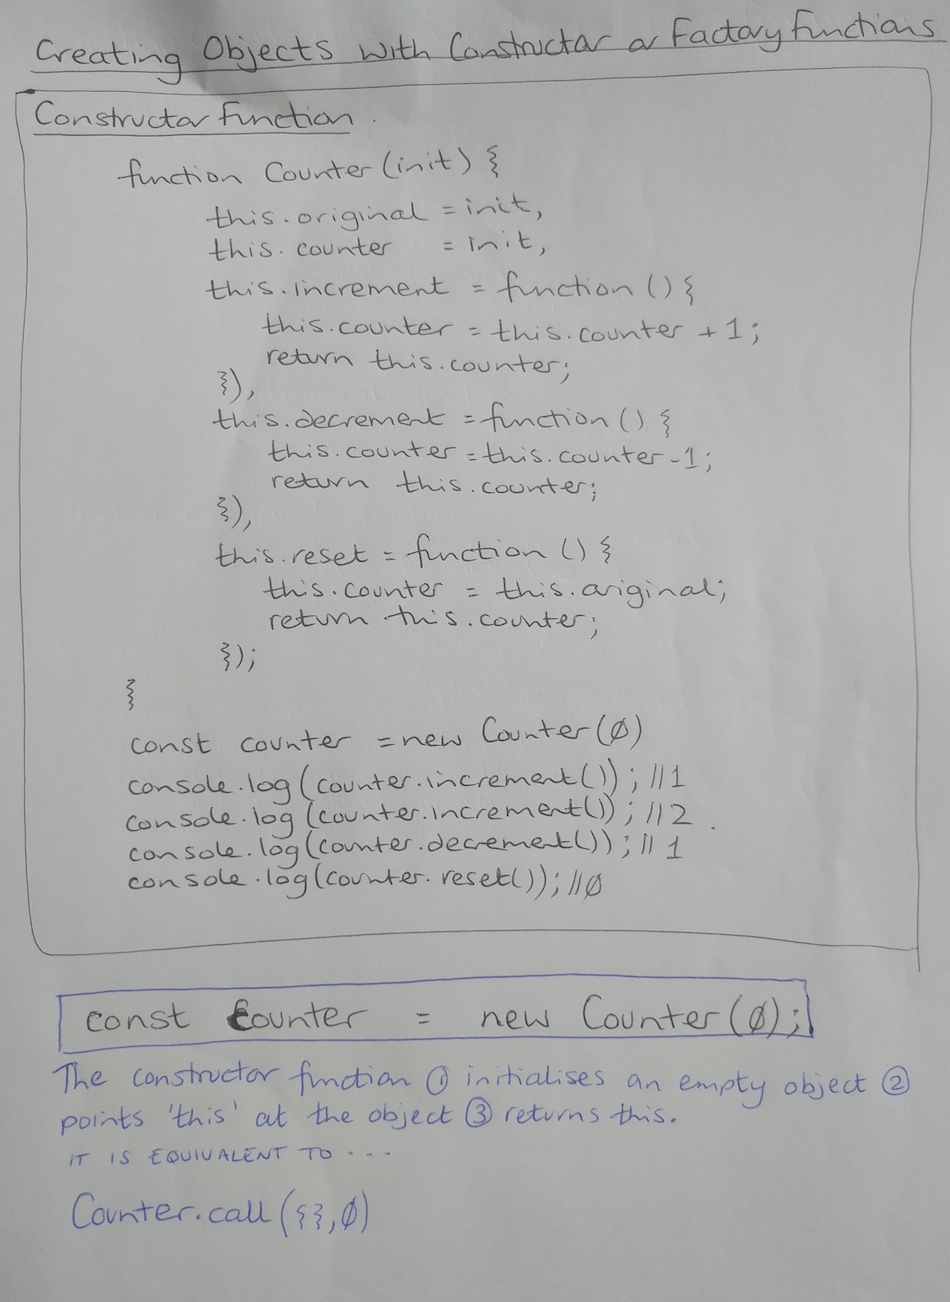 Creating Objects with Constructor or Factory Functions
Constructor Function.
function Counter (init) {
this.original = init,
this.counter = init,
this.increment = function () {
this.counter = this.counter + 1;
return this.counter;
}),
this.decrement = function () {
this.counter = this.counter - 1;
return this.counter;
}),
this.reset = function () {
this.counter = this.original;
return this.counter;
});
}
const counter = new Counter (0)
console.log (counter.increment()); // 1
console.log (counter.increment()); // 2
console.log (counter.decrement()); // 1
console.log (counter.reset()); // 0
const counter = new Counter (0);
The constructor function ① initialises an empty object ②
points 'this' at the object ③ returns this.
IT IS EQUIVALENT TO ...
Counter.call ({}, 0)